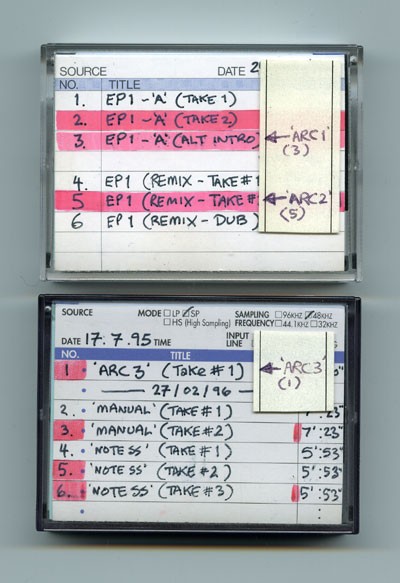 SOURCE DATE 2
NO. TITLE
1. EP1 - 'A' (TAKE 1)
2. EP1 - 'A' (TAKE 2)
3. EP1 - 'A' (ALT INTRO) ← 'ARC1'
(3)
4. EP1 (REMIX - TAKE #1
5 EP1 (REMIX - TAKE # ← 'ARC2'
(5)
6 EP1 (REMIX - DUB)
SOURCE MODE □ LP ☑ SP SAMPLING □ 96KHZ ☑ 48KHZ
□ HS (High Sampling) FREQUENCY □ 44.1KHZ □ 32KHZ
DATE 17.7.95 TIME INPUT
LINE
NO. TITLE
1 'ARC3' (Take #1) ← 'ARC3'
(1)
— 27/02/96 —
2. 'MANUAL' (TAKE #1) 7':23"
3. 'MANUAL' (TAKE #2) 7':23"
4. 'NOTE SS' (TAKE #1) 5':53"
5. 'NOTE SS' (TAKE #2) 5':53"
6. 'NOTE SS' (TAKE #3) 5':53"